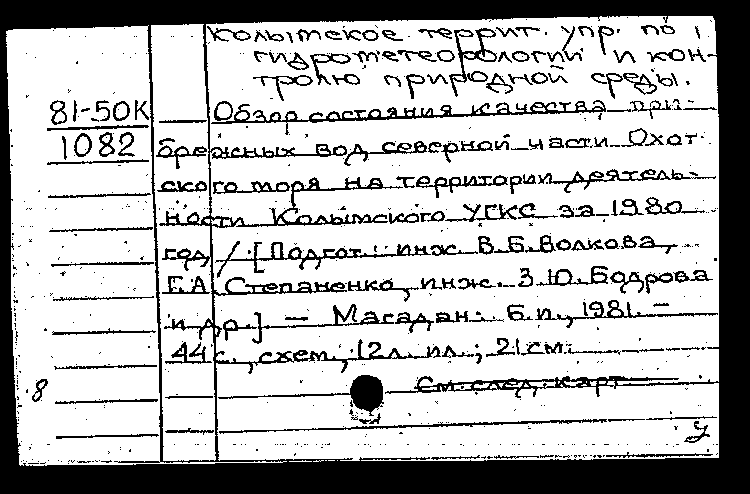 Колымское террит. упр. по
гидрометеорологии и кон-
тролю природной среды.
81-50К
1082
Обзор состояния качества при-
брежных вод северной части Охот
ского моря на территории деятель-
ности Колымского УГКС за 1980
год / [Подгот.: инж. В.Б.Волкова,
Г.А. Степаненко, инж. З.Ю. Бодрова
и др.] — Магадан: Б.и., 1981. —
44 с., схем., 12 л. ил.; 21 см.
См. след. карт
8